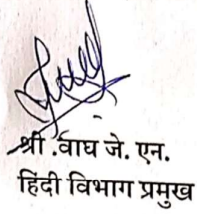 श्री .वाघ जे. एन.
हिंदी विभाग प्रमुख